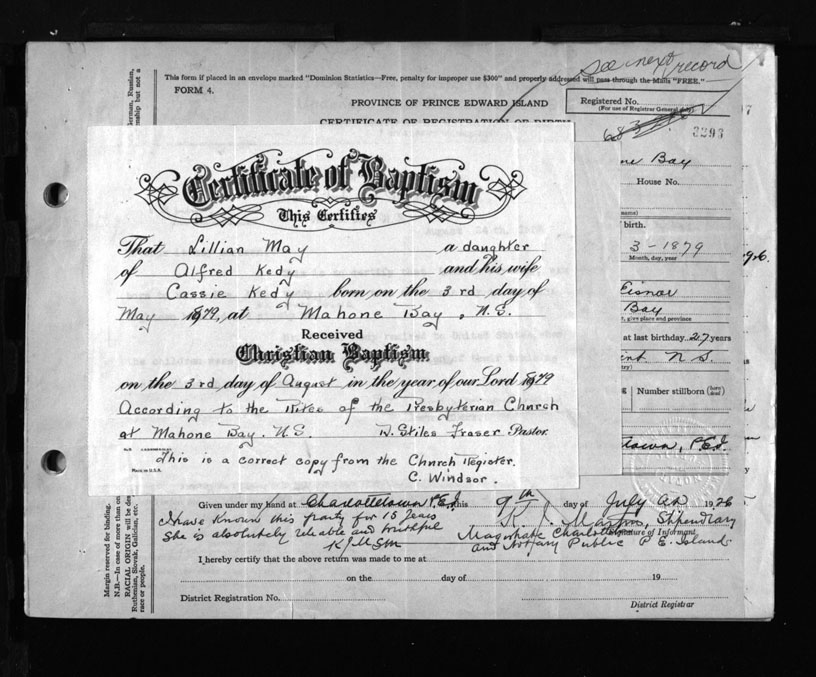 see next record
This form if placed in an envelope marked "Dominion Statistics—Free, penalty for improper use $300" and properly addressed will pass through the Mails "FREE."
FORM 4.
PROVINCE OF PRINCE EDWARD ISLAND
Registered No.
(For use of Registrar General only)
CERTIFICATE OF REGISTRATION OF BIRTH
3293
Bay
House No.
name)
birth.
3-1879
Month, day, year
Bay
give place and province
at last birthday 27 years
N S.
Number stillborn (born dead)
town, P.E.I.
Certificate of Baptism
This Certifies
That Lillian May a daughter
of Alfred Kedy and his wife
Cassie Kedy born on the 3rd day of
May 1879, at Mahone Bay, N.S.
Received
Christian Baptism
on the 3rd day of August in the year of our Lord 1879
According to the Rites of the Presbyterian Church
at Mahone Bay. N.S. D. Stiles Fraser Pastor
This is a correct copy from the Church Register.
MADE IN U.S.A.
C. Windsor.
Given under my hand at Charlottetown P.E.I. this 9th day of July AD 1926
I have known this party for 15 years
She is absolutely reliable and truthful
K. J. Martin, Stipendiary
Signature of Informant
Magistrate Charlottetown
and Notary Public P E Island.
I hereby certify that the above return was made to me at
on the day of 19
District Registration No.
District Registrar
Margin reserved for binding.
N.B.—In case of more than on
RACIAL ORIGIN will be des
Ruthenian, Slovak, Galician, etc.
race or people.
erman, Russian,
nship but not a